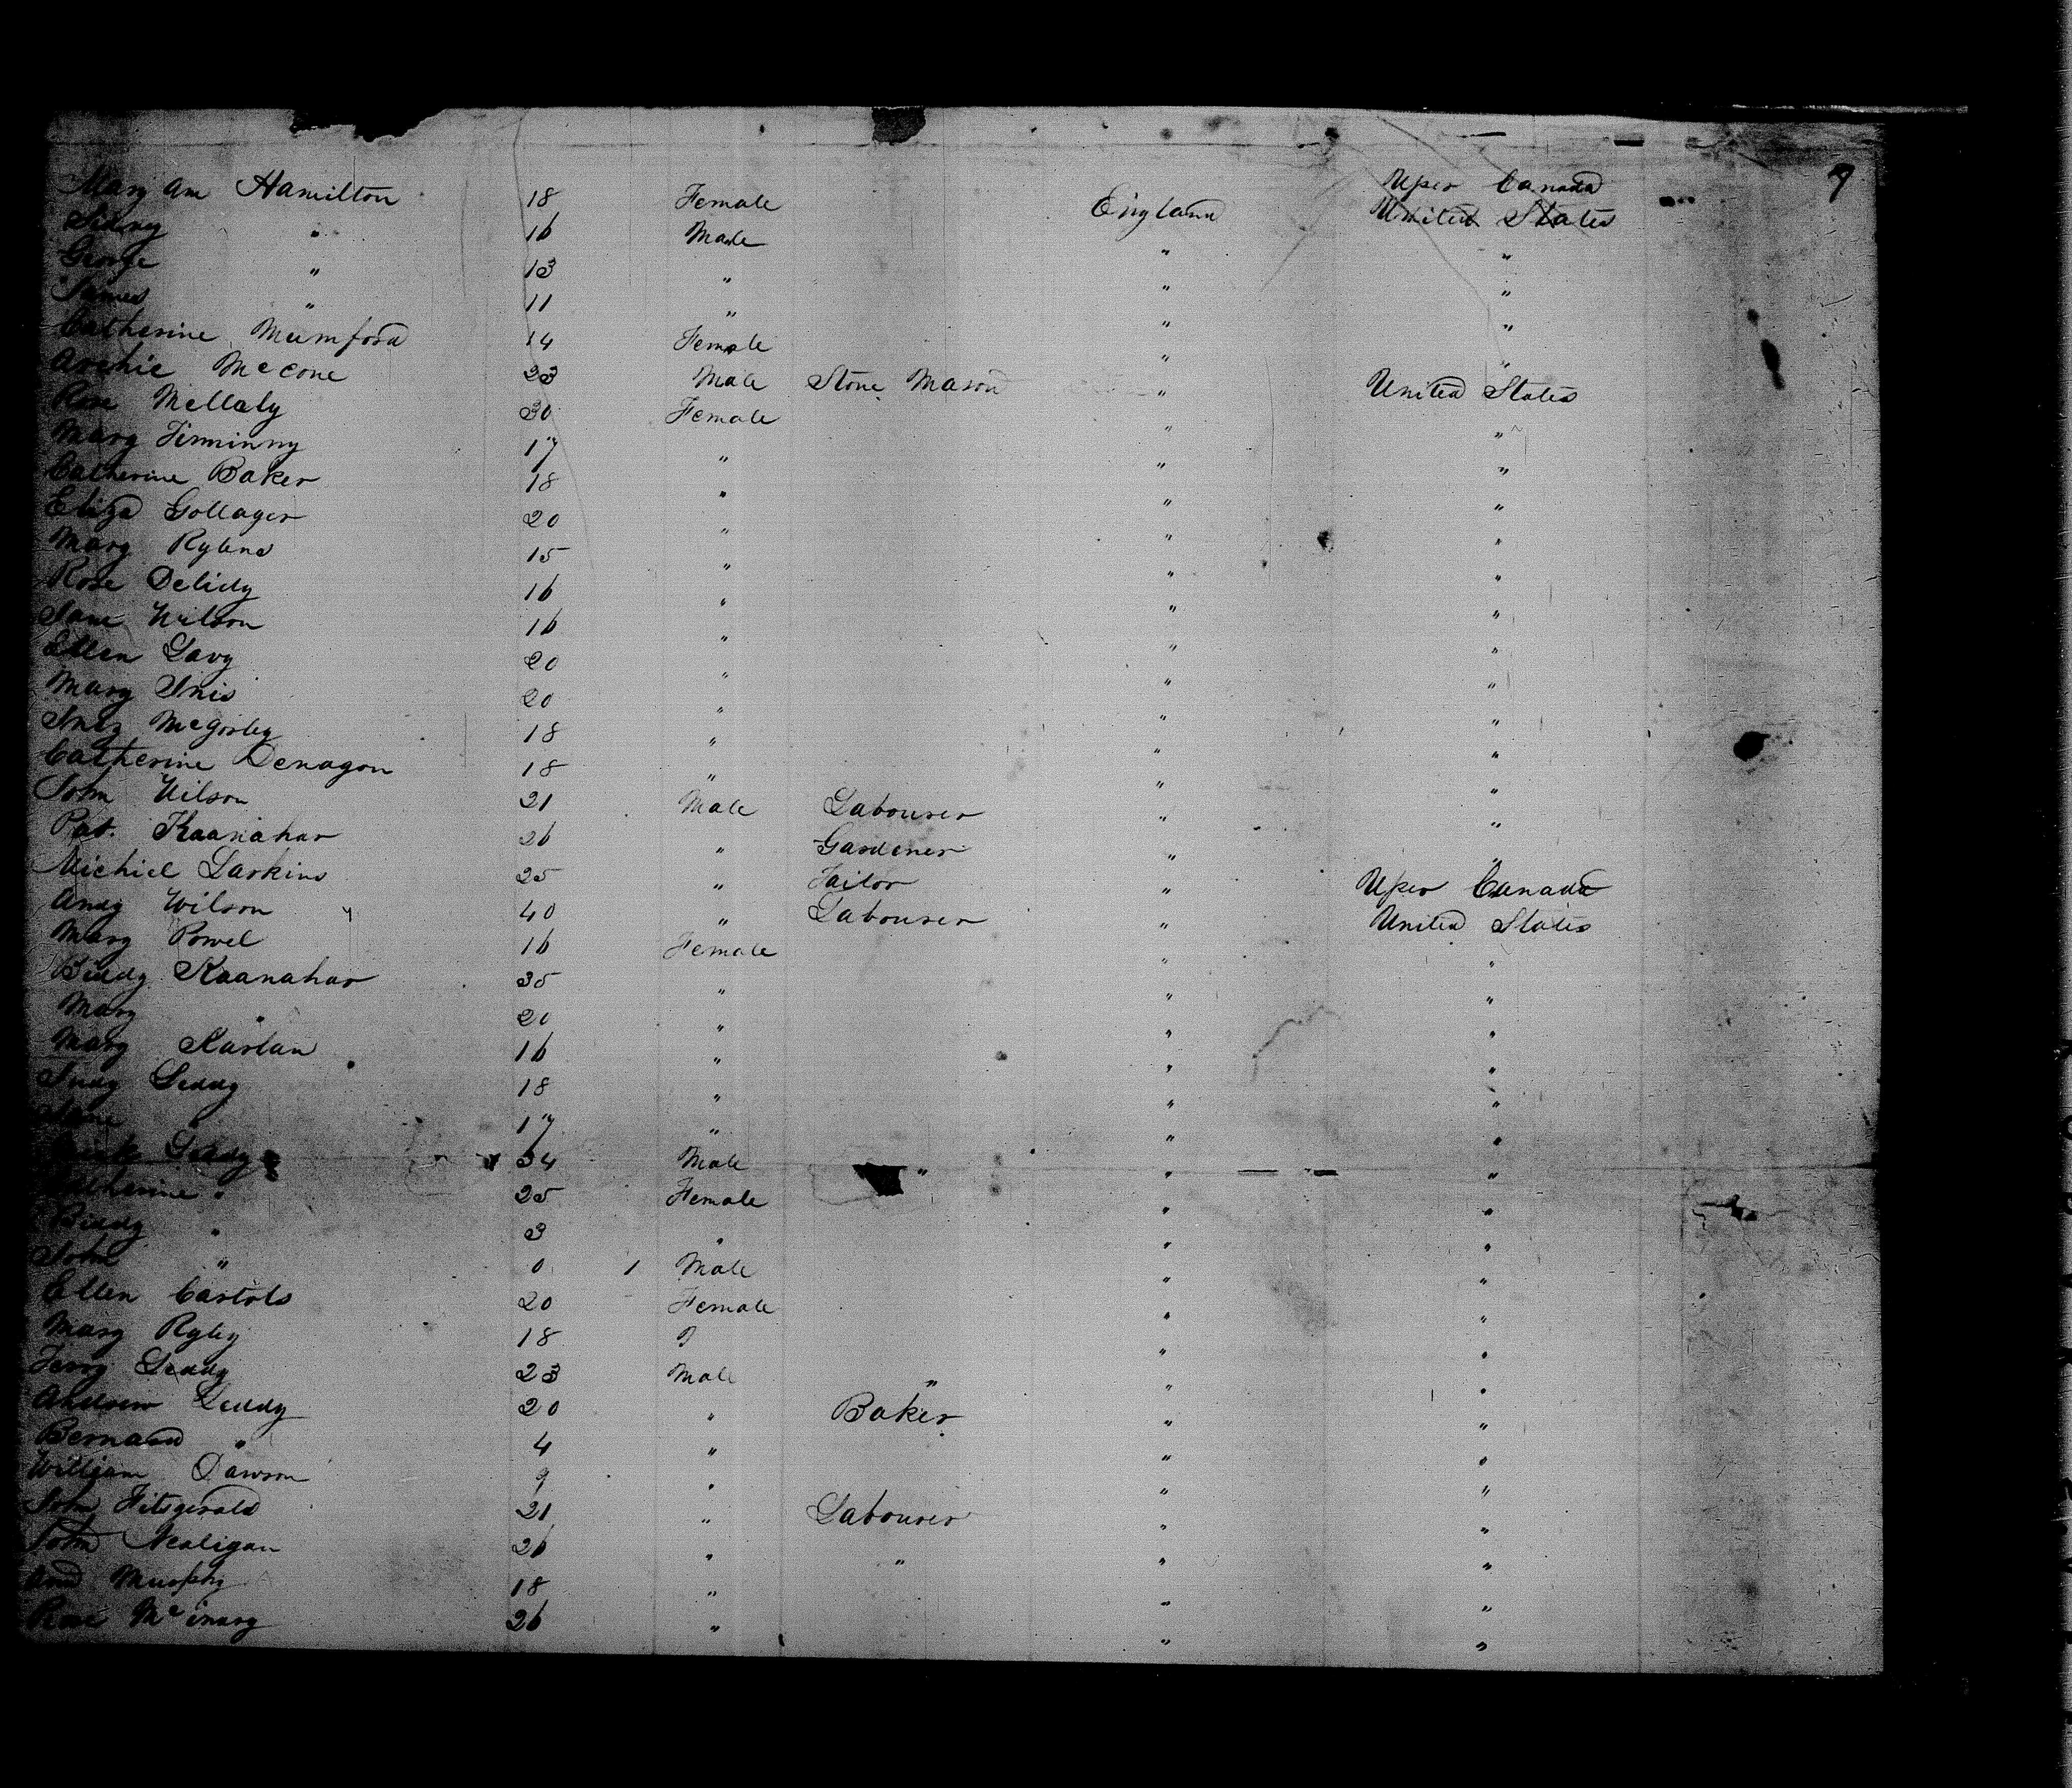 9
Uper Canada
Mary Am Hamilton 18 Female England United States
Sidny " 16 Male " "
George " 13 " " "
James " 11 " " "
Catherine Mumford 14 Female " "
Archie McCone 23 Male Stone Mason " United States
Rose Mellaly 30 Female " "
Mary 17 " " "
Catherine Baker 18 " " "
Eliza Gollager 20 " " "
Mary Rylens 15 " " "
Rose Delidy 16 " " "
Jane Wilson 16 " " "
Ellen Lavy 20 " " "
Mary Inis 20 " " "
McGorley 18 " " "
Catherine Denagon 18 " " "
John Wilson 21 Male Labourer " "
Pat. Kaanahar 26 " Gardener " "
Michiel Larkins 25 " Tailor " Uper Canada
Andy Wilson 40 " Labourer " United States
Mary Powel 16 Female " "
Biddy Kaanahar 35 " " "
Mary " 20 " " "
Mary Karlan 16 " " "
Judy Leddy 18 " " "
Jane " 17 " " "
Leddy 34 Male " " "
Catherine " 25 Female " "
Biddy " 3 " " "
John " 0 1 Male " "
Ellen Castols 20 Female " "
Mary Ryley 18 " " "
Terry Leddy 23 Male " " "
Andrew Leddy 20 " Baker " "
Bernard " 4 " " "
William Dawson 9 " " "
John Fitsgerald 21 " Labourer " "
John Nealigan 26 " " " "
Murphy 18 " " "
Rose McInary 26 " " "